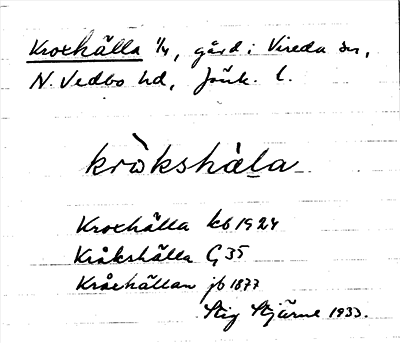 Kroxhälla 1/4, gård i Vireda sn,
N. Vedbo hd, Jönk. l.
krò̀kshàla
Kroxhälla kb 1924
Kråkshälla G 35
Kråxhällan jb 1877
Stig Stjärne 1933.